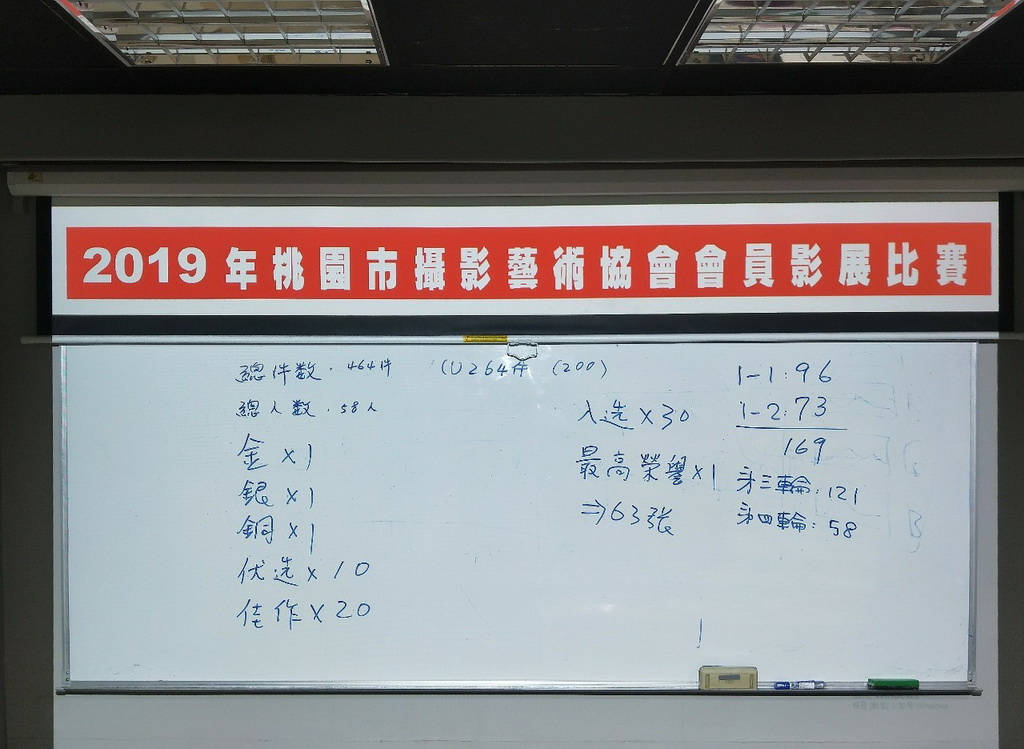 2019年桃園市攝影藝術協會會員影展比賽
總件数.464件 (1)264件 (200)
總人数.58人
金x1
銀x1
銅x1
优选x10
佳作x20
入选x30
最高榮譽x1
⇒63张
1-1:96
1-2:73
169
第三輪:121
第四輪:58